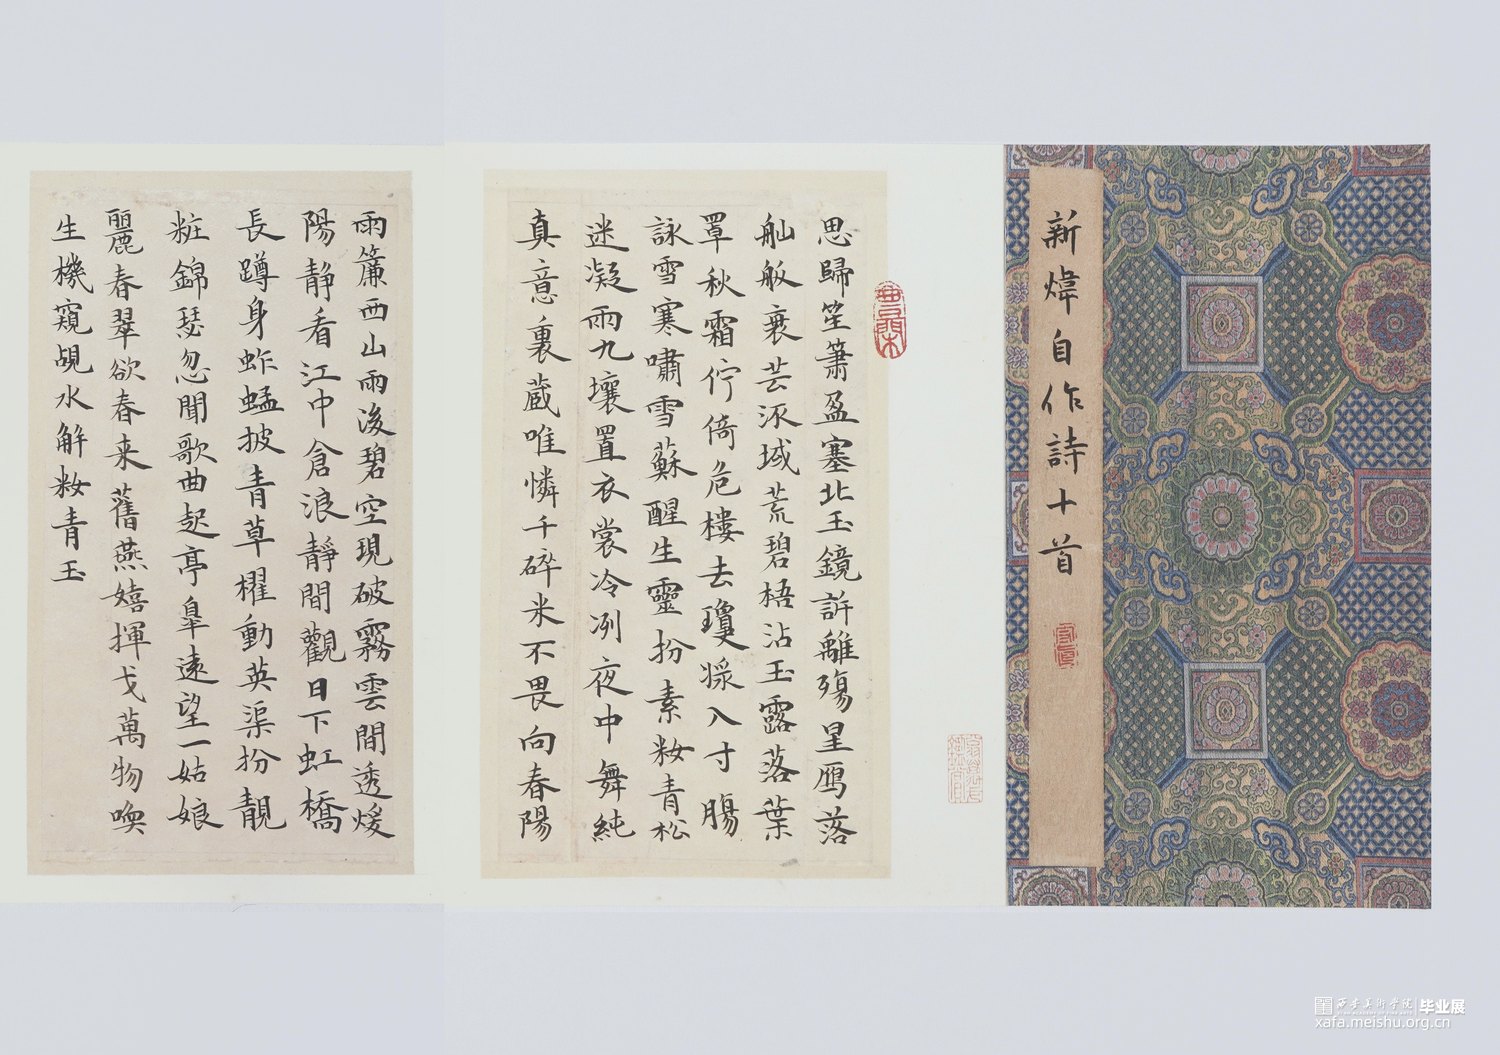 新煒自作詩十首
思歸笙簫盈塞北玉鏡許離殤星鴈落
舢舨衰芸涿域荒碧梧沾玉露落葉
罩秋霜佇倚危樓去瓊漿入寸腸
詠雪寒嘯雪蘇醒生靈扮素妝青松
迷凝雨九壤置衣裳冷冽夜中舞純
真意裏蔵唯憐千碎米不畏向春陽
雨簾西山雨後碧空現破霧雲間透煖
陽靜看江中倉浪靜間觀日下虹橋
長蹲身蚱蜢披青草櫂動英渠扮靚
粧錦瑟忽聞歌曲起亭皐遠望一姑娘
麗春翠欲春来舊燕嬉揮戈萬物喚
生機窺覘水解妝青玉
西安美術學院 毕业展
xafa.meishu.org.cn